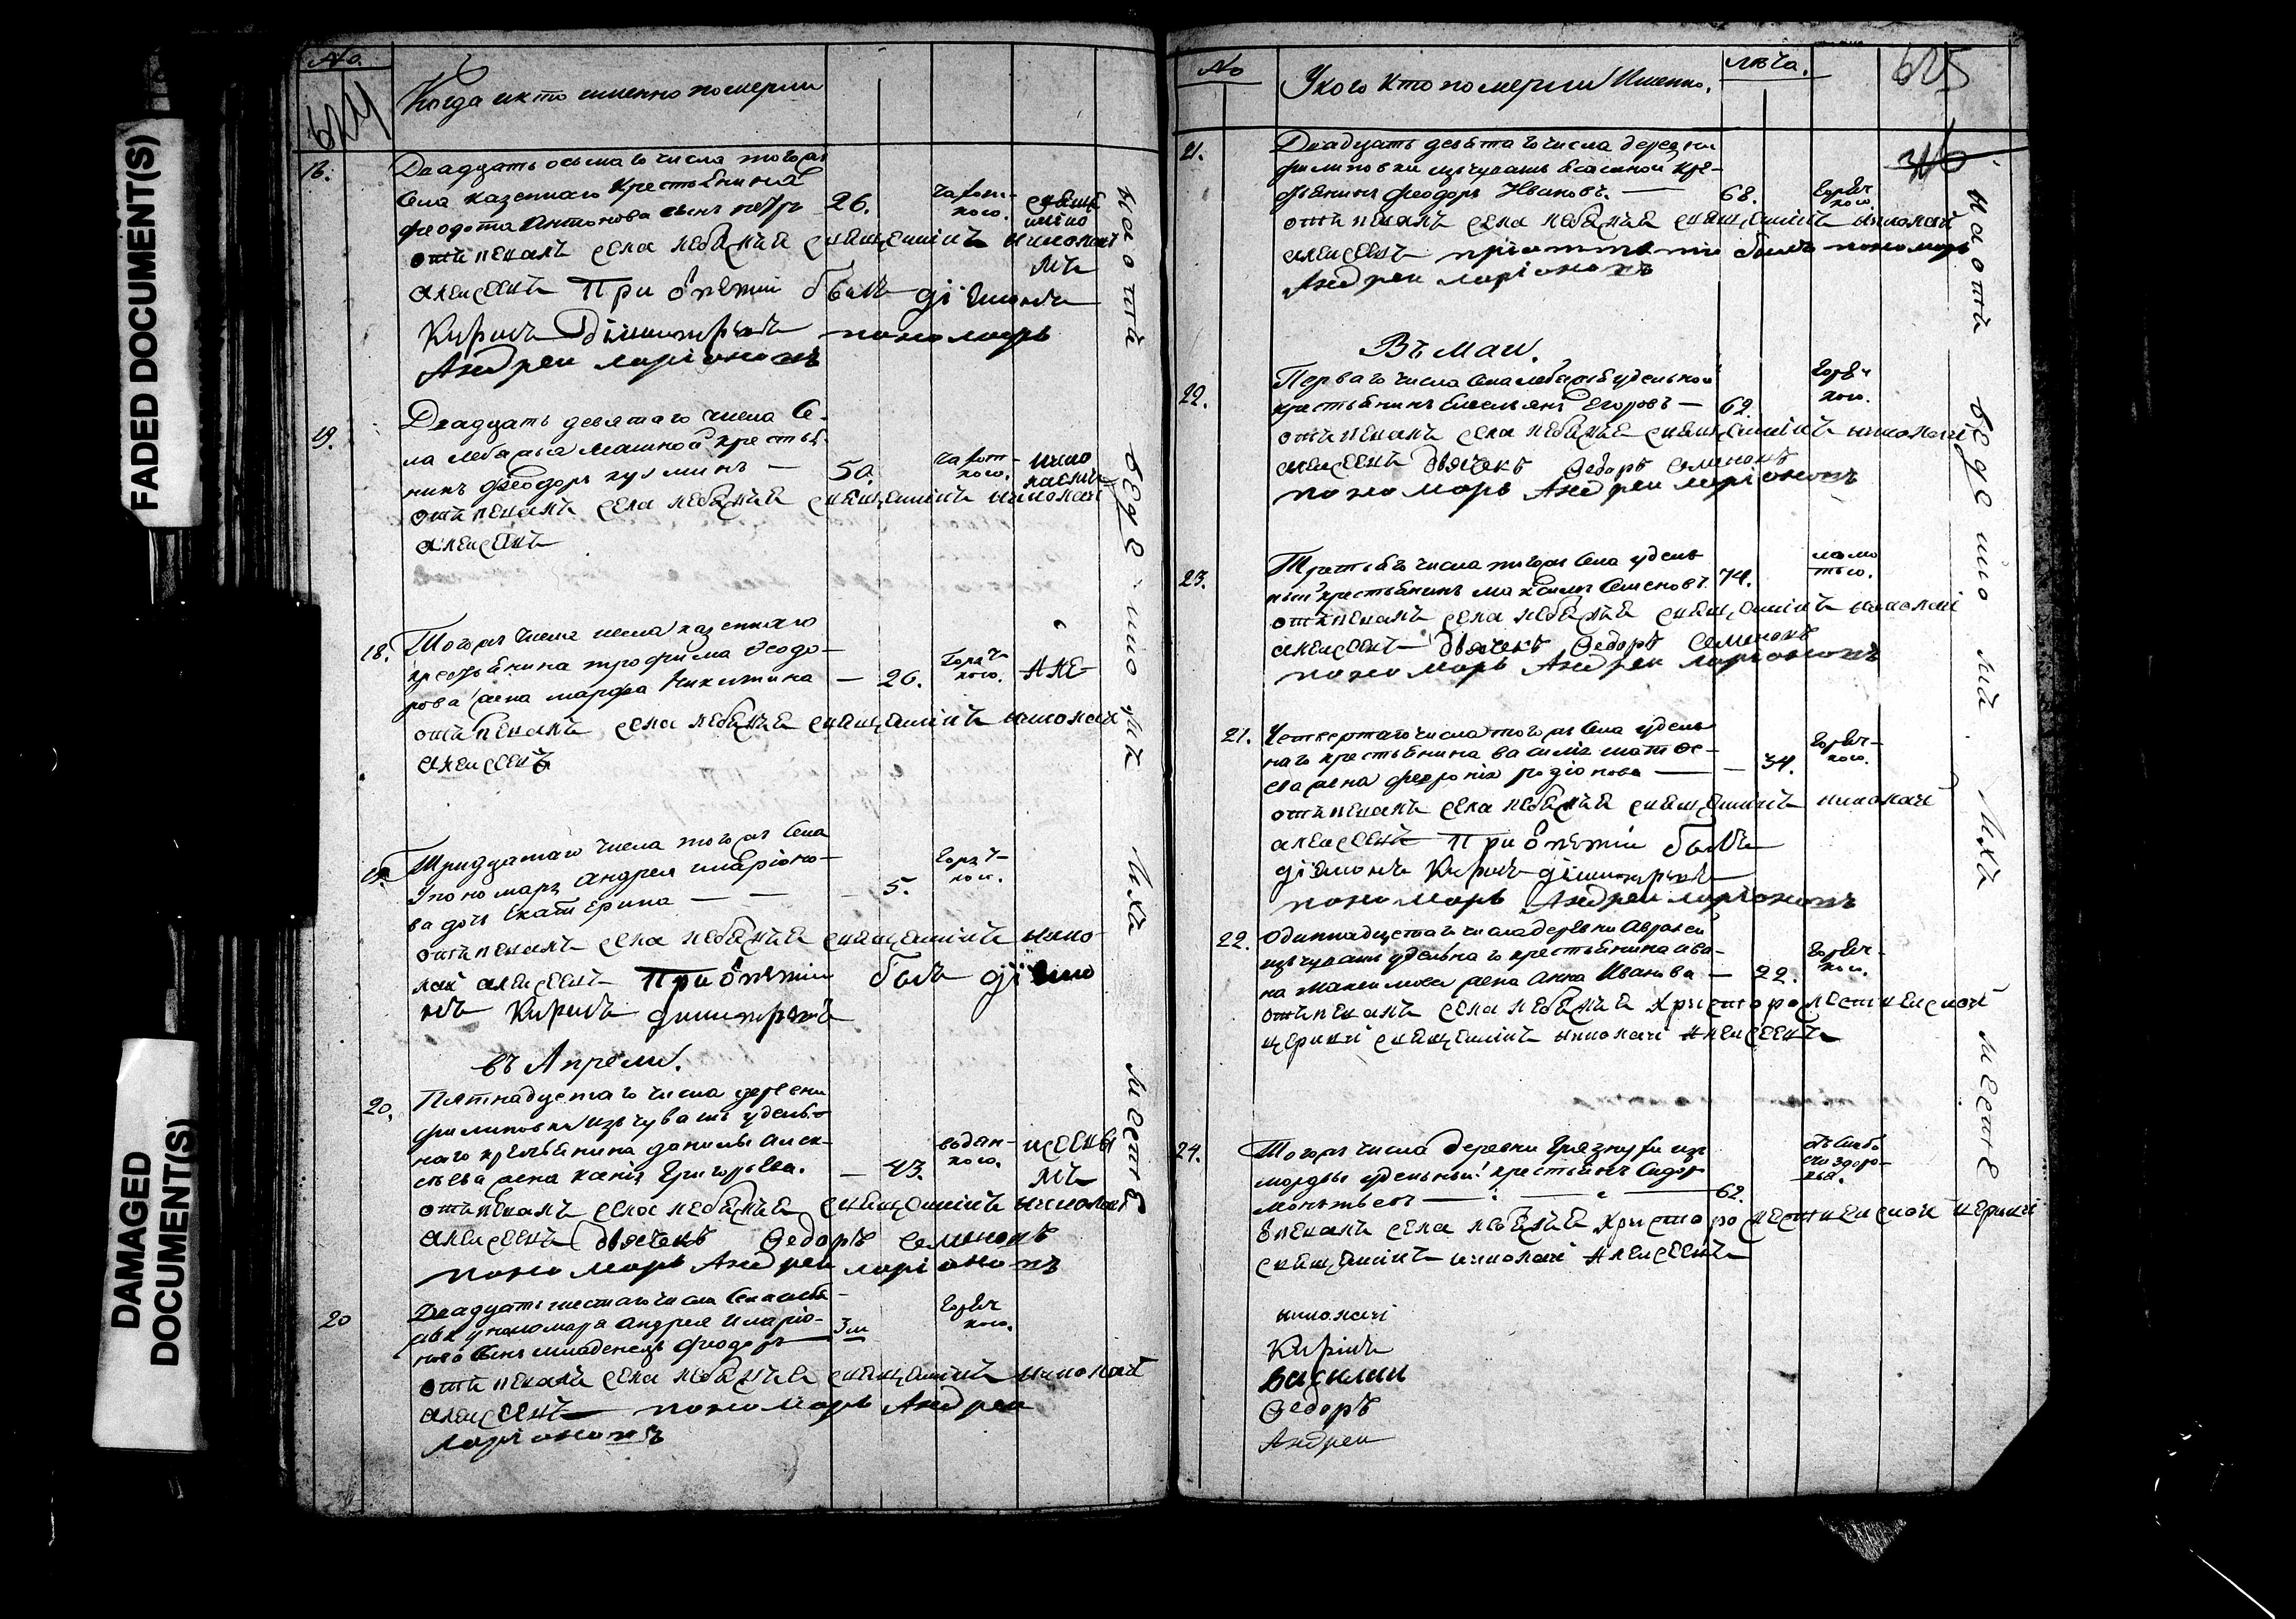 FADED DOCUMENT(S)
DAMAGED
DOCUMENT(S)
No.
624
Когда и кто именно померли
16.
Двадцать осьмаго числа тогожъ
Села казеннаго крестьянина
Федота Антонова сынъ Петръ 26. чахот-
кою.
отпевалъ села лебяжья священникъ николай
алексеевъ При отпетіи былъ діаконъ
Кирилъ Димитріевъ пономарь
Андреи ларіоновъ
19.
Двадцать девятаго числа Се-
ла Лебяжья крестья-
нинъ Феодоръ кузминъ — 50. чахот-
кою.
отпевалъ села лебяжья священникъ николай
алексеевъ
18.
Тогожъ числа казеннаго
крестьянина трофима Феодо-
рова жена марфа Никитина — 26. Горяч-
кою.
отпевалъ села лебяжья священникъ николай
алексеевъ
19.
Тридцатаго числа тогожъ Села
Упономаря андрея иларіоно-
ва дочь Екатерина — 5. Горяч-
кою.
отпевалъ села лебяжья священникъ нико-
лай алексеевъ При отпетіи былъ діако
нъ Кирилъ димитріевъ
въ Апрели.
20.
Пятнадцатаго числа деревни
филиповки изъ чувашъ удель-
наго крестьянина данилы Алек-
сеева жена Григорьева. — 43. водян-
кою.
отпевалъ села лебяжья священникъ николай
алексеевъ дьячекъ Федоръ Семеновъ
пономарь Андреи ларіоновъ
20
Двадцать шестаго числа Села лебя-
жья упономаря андрея иларіо-
нова сынъ младенецъ Феодоръ — 3м Горяч
кою.
отпевалъ села лебяжья священникъ николай
алексеевъ пономарь Андреи
ларіоновъ
No
Укого кто померли Именно.
лѣта.
625
21.
Двадцать девятаго числа деревни
филиповки изъ чувашъ ясашной кре-
стьянинъ Феодоръ Ивановъ. — 68. Горяч
кою.
отпевалъ села лебяжья священникъ николай
алексеевъ при отпетіи былъ пономарь
Андреи ларіоновъ
Въ маи.
22.
Перваго числа Села лебяжья удельной
крестьянинъ Емельянъ Егоровъ — 62. Горяч
кою.
отпевалъ села лебяжья священникъ николай
алексеевъ дьячекъ Федоръ Семеновъ
пономарь Андреи ларіоновъ
23.
Третьяго числа тогожъ Села удель
ный крестьянинъ максимъ Семеновъ. 74.
отпевалъ села лебяжья священникъ николай
алексеевъ дьячекъ Федоръ Семеновъ
пономарь Андреи ларіоновъ
21.
Четвертаго числа тогожъ Села удель
наго крестьянина василія матфе-
ева жена феврониа родіонова — 34. Горяч-
кою.
отпевалъ села лебяжья священникъ николай
алексеевъ При отпетіи былъ
діаконъ Кирилъ димитріевъ
пономарь Андреи ларіоновъ
22.
Одиннадцатаго числа деревни Авралей
изъ чувашъ удельнаго крестьянина ива-
на Максимова жена Анна Иванова — 22. Горяч-
кою.
отпевалъ села лебяжья христорожественской
церкви священникъ николай алексеевъ
24.
Тогожъ числа деревни Грязнухи изъ
мордвы удельный крестьянинъ Сидоръ
— 62.
отпевалъ села лебяжья христорожественской церкви
священникъ николай алексеевъ
николай
Кирилъ
василии
Федоръ
Андреи